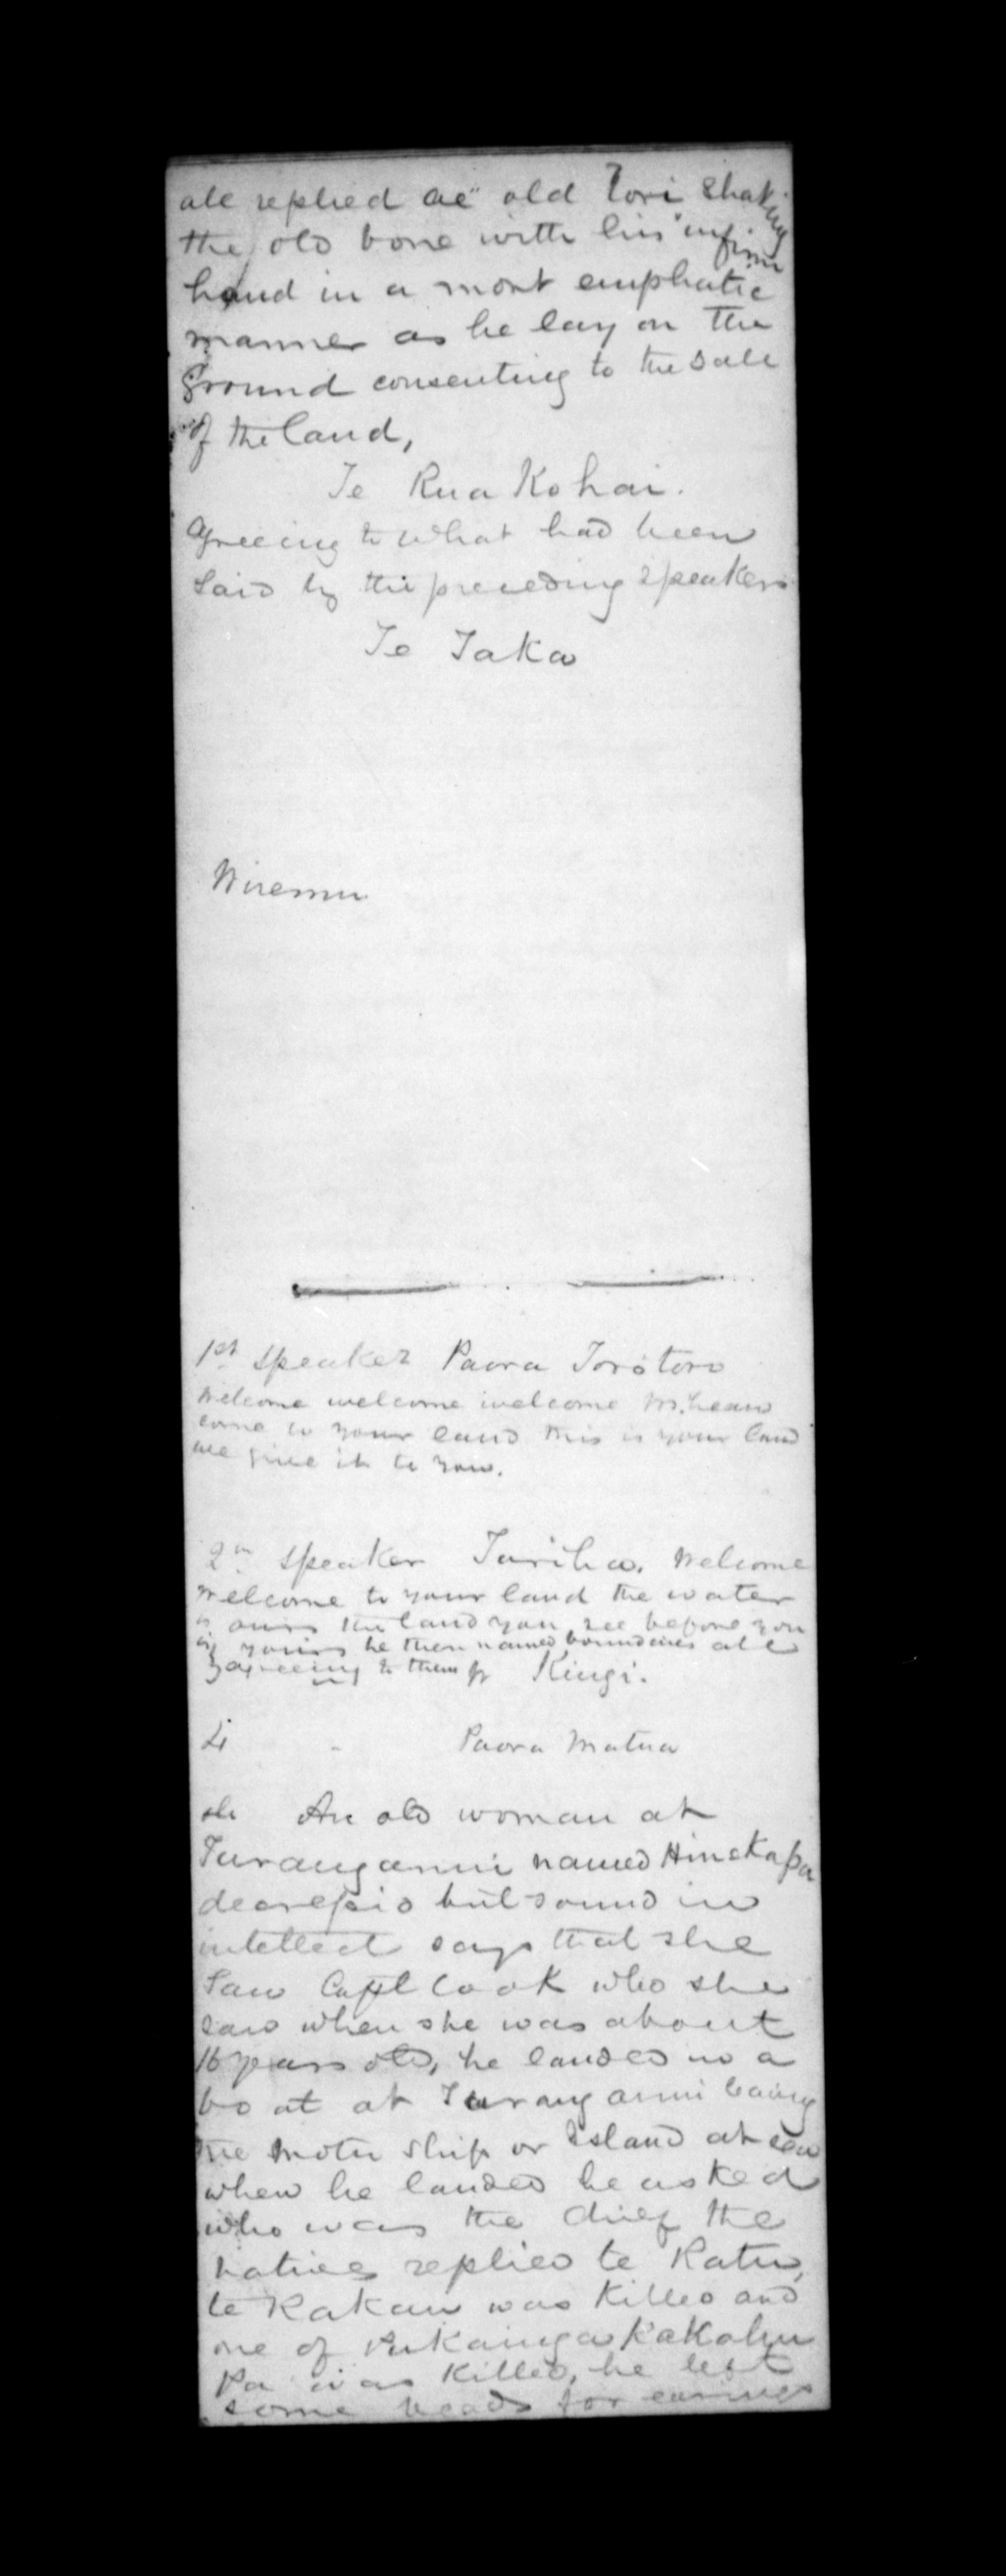 all replied ae" old Tori shaking
the old bone with his infirm
hand in a most emphatic
manner as he lay on the
ground consenting to the sale
of the land,
Te Rua Kohai.
agreeing to what had been
said by the preceding speakers
Te Taka
Wiremu
1st speaker Paora Torotoro
Welcome welcome welcome McLean
come to your land this is your land
we give it to you.
2nd speaker Tariha. Welcome
welcome to your land the water
is ours the land you see before you
is yours he then named boundaries all
3 agreeing to them Kingi.
4 - Paora Matua
An old woman at
Turanganui named Hinekapa
decrepid but sound in
intellect says that she
saw Capt Cook who she
saw when she was about
16 years old, he landed in a
boat at Turanganui
the ship or Island at sea
when he landed he asked
who was the chief the
natives replied te Ratu,
te Rakau was killed and
one of Pukainga Kakahu
Pa was killed, he left
some beads for earings